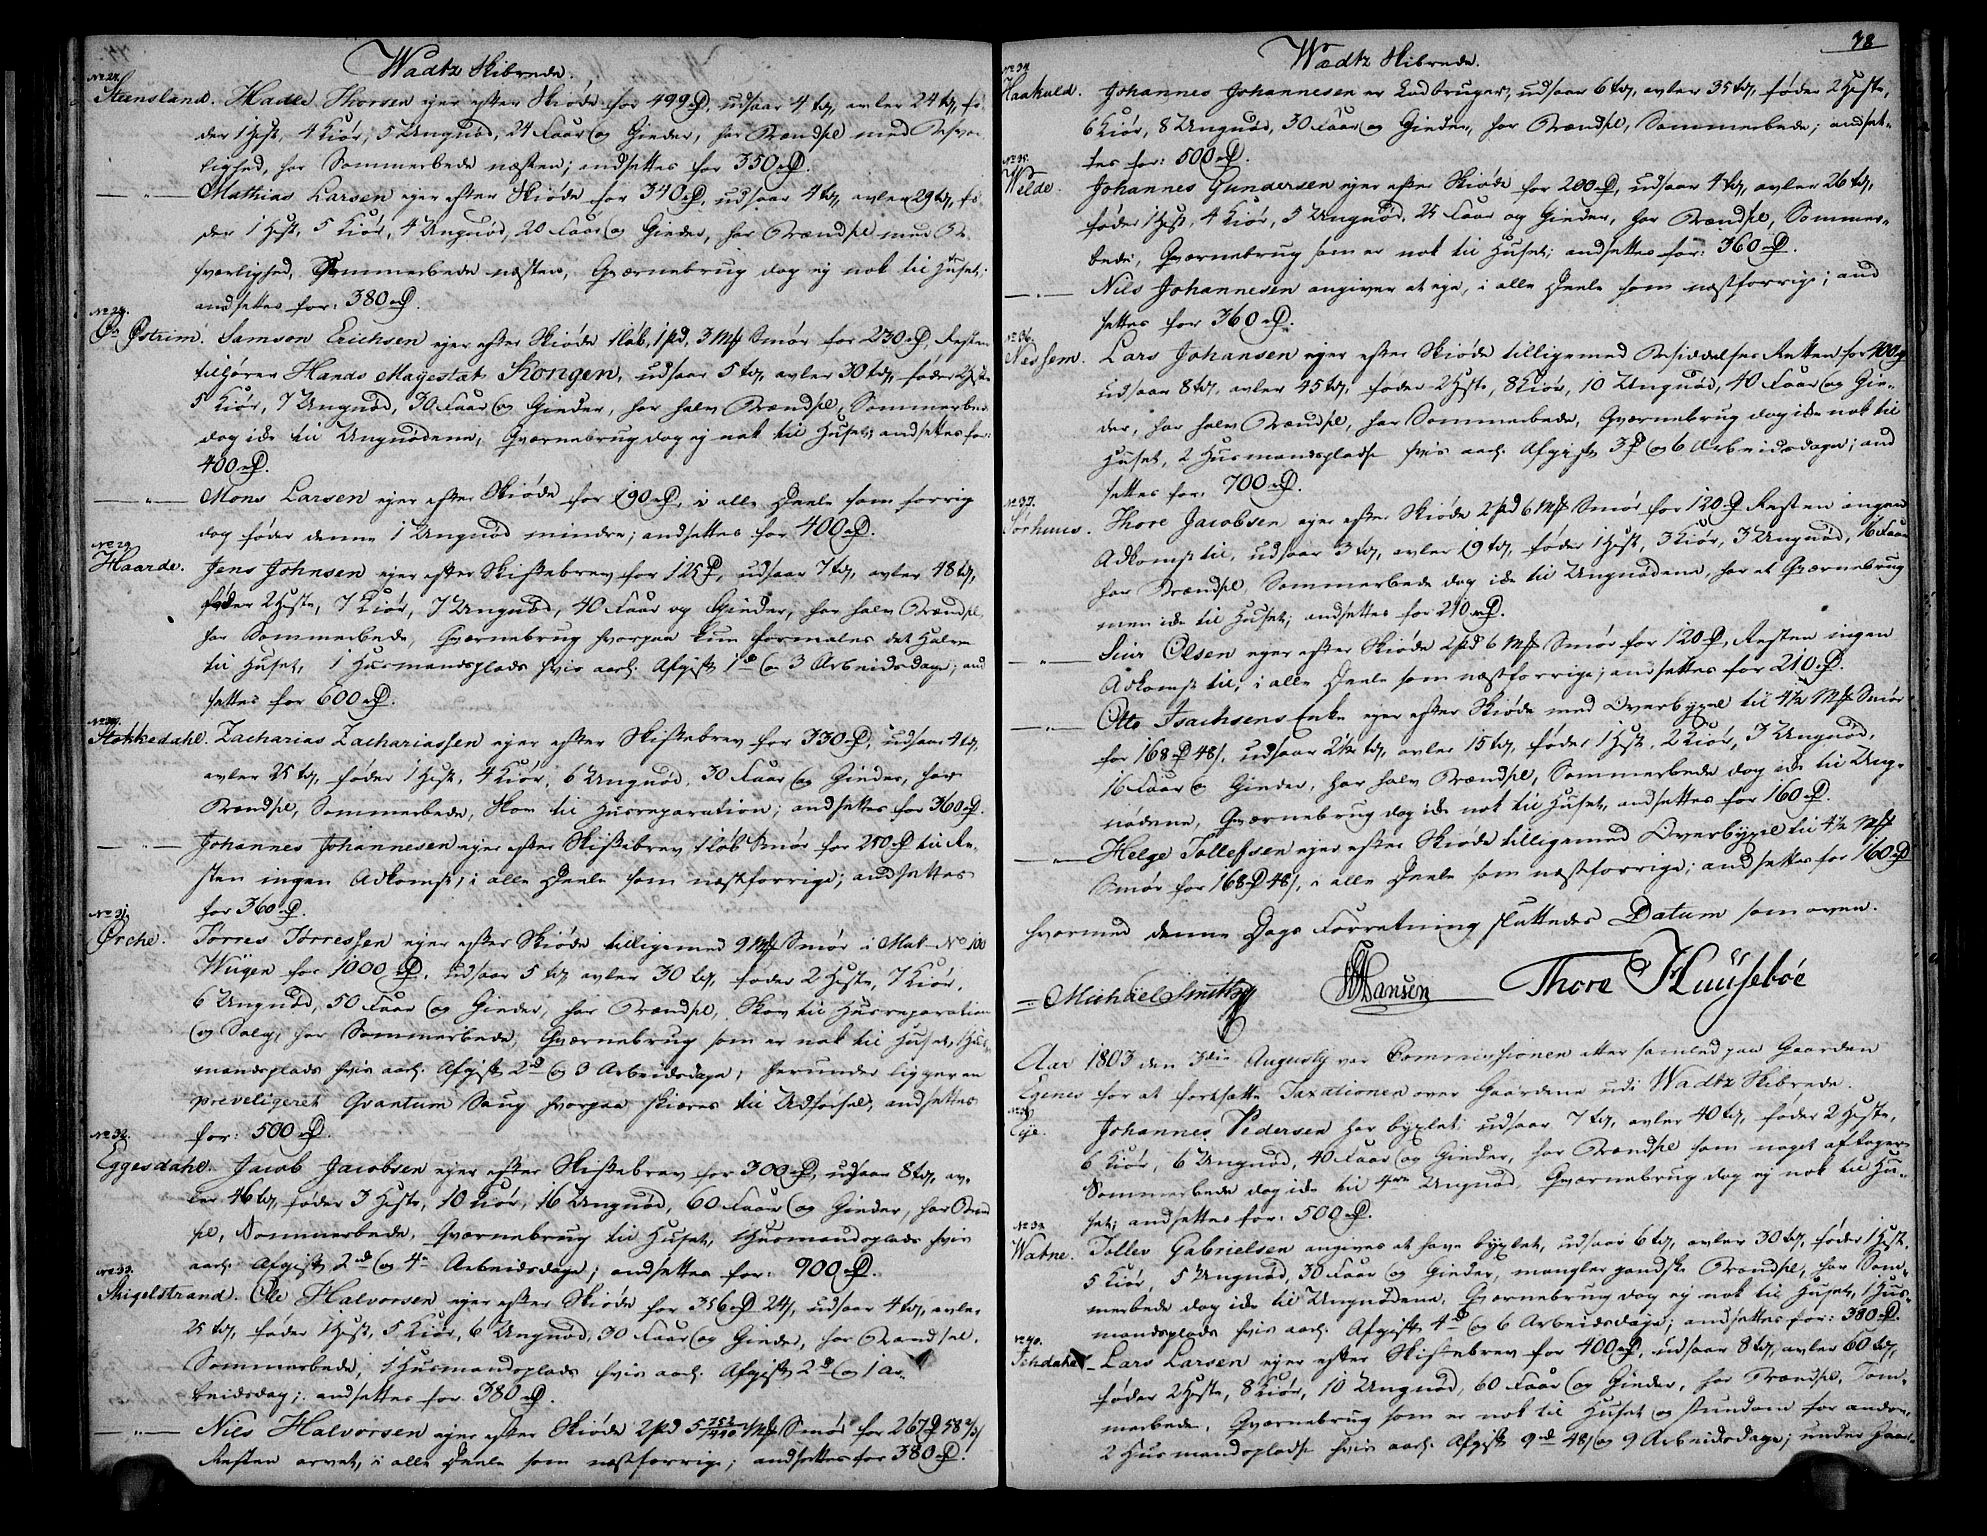 Wadtz Skibrede.
No 27.
Steensland. Hadle Thorsen ejer efter Skiøde for 499 rD, udsaar 4 tdr, avler 24 tdr, fø-
der 1 Hest, 4 Kiør, 5 Ungnød, 24 Faar og Gieder, har Brændsel med Besvær-
lighed, har Sommerbede næsten; ansettes for 350 rD.
— " — Mathias Larsen ejer efter Skiøde for 340 rD, udsaar 4 tdr, avler 29 tdr, fø-
der 1 Hest, 5 Kiør, 4 Ungnød, 20 Faar og Gieder, har Brændsel med Be-
sværlighed, Sommerbede næsten, Qværnebrug dog ej nok til Huset;
andsettes for: 380 rD.
No 28.
Østrim. Samson Erichsen ejer efter Skiøde 1 løb, 1 pd, 3 Mk Smør for 230 rD, Resten
tilhører Hands Mayestæt Kongen, udsaar 5 tdr, avler 30 tdr, føder 2 Heste
5 Kiør, 7 Ungnød, 30 Faar og Gieder, har halv Brændsel, Sommerbede
dog ikke til Ungnødene, Qværnebrug dog ej nok til Huset; andsettes for:
400 rD.
— " — Mons Larsen ejer efter Skiøde for 190 rD, i alle Deele som forrig
dog føder denne 1 Ungnød mindre; andsettes for 400 rD.
No 29.
Haarde. Jens Johnsen ejer efter Skiftebrev for 125 rD, udsaar 7 tdr, avler 48 tdr,
føder 2 Heste, 7 Kiør, 7 Ungnød, 40 Faar og Gieder, har halv Brændsel
har Sommerbede, Qværnebrug hvorpaa kun formales det Halve
til Huset, 1 Husmandsplads hvis aarl. Afgift 1 rd og 3 Arbeidsdage; and
settes for 600 rD.
No 30.
Stokkedahl. Zacharias Zachariassen ejer efter Skiftebrev for 330 rD, udsaar 4 tdr,
avler 25 tdr, føder 1 Hest, 4 Kiør, 6 Ungnød, 30 Faar og Gieder, har
Brændsel, Sommerbede, Skov til Husreparation; andsettes for 360 rD.
— " — Johannes Johannesen ejer efter Skiftebrev 1 løb Smør for 250 rD til Re-
sten ingen Adkomst, i alle Deele som næstforrige; andsettes
for 360 rD.
No 31.
Ørche. Torres Torressen ejer efter Skiøde tilligemed 9 Mk Smør i Mat No 100
Wiigen for 1000 rD, udsaar 5 tdr avler 30 tdr, føder 2 Heste, 7 Kiør,
6 Ungnød, 50 Faar og Gieder, har Brændsel, Skov til Husreparation
og Salg, har Sommerbede, Qværnebrug som er nok til Huset, 1 Hus-
mandsplads hvis aarl. Afgift 2 rd og 3 Arbeidsdage, herunder ligger en
preveligeret Qvantum Saug hvorpaa skiæres til Udførsel, andsettes
for: 500 rD.
No 32.
Eggesdahl. Jacob Jacobsen ejer efter Skiftebrev for 300 rD, udsaar 8 tdr, av-
ler 46 tdr, føder 3 Heste, 10 Kiør, 16 Ungnød, 60 Faar og Gieder, har Brænd
sel, Sommerbede, Qværnebrug til Huset, 1 Husmandsplads hvis
aarl. Afgift 2 rd og 4 Arbeidsdage; andsettes for: 900 rD.
No 33.
Skigelstrand. Ole Halvorsen ejer efter Skiøde for 356 rD 24 s, udsaar 4 tdr, avler
25 tdr, føder 1 Hest, 5 Kiør, 6 Ungnød, 30 Faar og Gieder, har Brændsel,
Sommerbede, 1 Husmandsplads hvis aarl. Afgift 2 rd og 1 Ar-
beidsdag; andsettes for 380 rD.
— " — Nils Halvorsen ejer efter Skiøde 2 pd 5 253/440 Mk Smør for 267 rD 58 2/5 s
Resten arvet, i alle Deele som næstforrige; andsettes for 380 rD.
78
Wadtz Skibrede.
No 34.
Haakuld. Johannes Johannesen er Ledbruger, udsaar 6 tdr, avler 35 tdr, føder 2 Heste,
6 Kiør, 8 Ungnød, 30 Faar og Gieder, har Brændsel, Sommerbede; andset-
tes for: 500 rD.
No 35.
Welde. Johannes Gundersen ejer efter Skiøde for 200 rD, udsaar 4 tdr, avler 26 tdr,
føder 1 Hest, 4 Kiør, 5 Ungnød, 25 Faar og Gieder, har Brændsel, Sommer-
bede, Qværnebrug som er nok til Huset; andsettes for: 360 rD.
— " — Nils Johannesen angiver at eje, i alle Deele som næstforrige; and
settes for 360 rD.
No 36.
Nessem. Lars Johansen ejer efter Skiøde tilligemed Besiddelses Retten for 400 rD
udsaar 8 tdr, avler 45 tdr, føder 2 Heste, 8 Kiør, 10 Ungnød, 40 Faar og Gie-
der, har halv Brændsel, har Sommerbede, Qværnebrug dog ikke nok til
Huset, 2 Husmandspladse hvis aarl. Afgift 3 rD og 6 Arbeidsdage; and
settes for: 700 rD.
No 37.
Sørhuus. Thore Jacobsen ejer efter Skiøde 2 pd 6 Mk Smør for 120 rD Resten ingen
Adkomst til, udsaar 3 tdr, avler 19 tdr, føder 1 Hest, 3 Kiør, 3 Ungnød, 16 Faar
har Brændsel, Sommerbede dog ikke til Ungnødene, har et Qværnebrug
men ikke til Huset; andsettes for 210 rD.
— " — Siur Olsen ejer efter Skiøde 2 pd 6 Mk Smør for 120 rD, Resten ingen
Adkomst til, i alle Deele som næstforrige; andsettes for 210 rD.
— " — Otto Isachsens Enke ejer efter Skiøde med Overbygsel til 4 1/2 Mk Smør
for 168 rD 48 s, udsaar 2 1/2 tdr, avler 15 tdr, føder 1 Hest, 2 Kiør, 3 Ungnød,
16 Faar og Gieder, har halv Brændsel, Sommerbede dog ikke til Ung-
nødene, Qværnebrug dog ikke nok til Huset, andsettes for 160 rD.
— " — Helge Tollefsen ejer efter Skiøde tilligemed Overbygsel til 4 1/2 Mk
Smør for 168 rD 48 s, i alle Deele som næstforrige; andsettes for 160 rD
hvormed denne Dags Forretning sluttedes Datum som oven.
Michael Smith HHansen Thore Huusebøe
Aar 1803 den 3die Augusty var Commissionen atter samled paa Gaarden
Egenes for at fortsætte Taxationen over Gaardene udi Wadtz Skibrede.
No 38.
Eje. Johannes Pedersen har bygslet, udsaar 7 tdr, avler 40 tdr, føder 2 Heste,
6 Kiør, 6 Ungnød, 40 Faar og Gieder, har Brændsel som noget aftager
Sommerbede dog ikke til Ungnød, Qværnebrug dog ej nok til Hu-
set; andsettes for: 500 rD.
No 39.
Watne. Tollev Gabrielsen angives at have bygslet, udsaar 6 tdr, avler 30 tdr, føder 1 Hest,
5 Kiør, 5 Ungnød, 30 Faar og Gieder, mangler gandske Brændsel, har Som-
merbede dog ikke til Ungnødene, Qværnebrug dog ej nok til Huset, 1 Hus-
mandsplads hvis aarl. Afgift 4 rd og 6 Arbeidsdage; andsettes for: 380 rD.
No 40.
Lars Larsen ejer efter Skiftebrev for 400 rD, udsaar 8 tdr, avler 60 tdr,
føder 2 Heste, 8 Kiør, 10 Ungnød, 60 Faar og Gieder, har Brændsel, Som-
merbede, Qværnebrug som er nok til Huset og stundom for andre,
2 Husmandspladse hvis aarl. Afgift 9 rd 48 s og 9 Arbeidsdage; under Gaar-